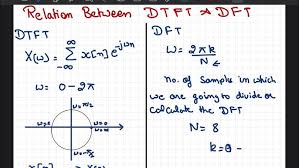 Relation Between DTFT & DFT
DTFT
X(ω) = ∞ Σ -∞ x[n] e^-jωn
ω = 0 - 2π
ω=π/2
ω=0
DFT
ω = 2πk / N
no. of Samples in which
we are going to divide or
calculate the DFT
N = 8
k=0 -